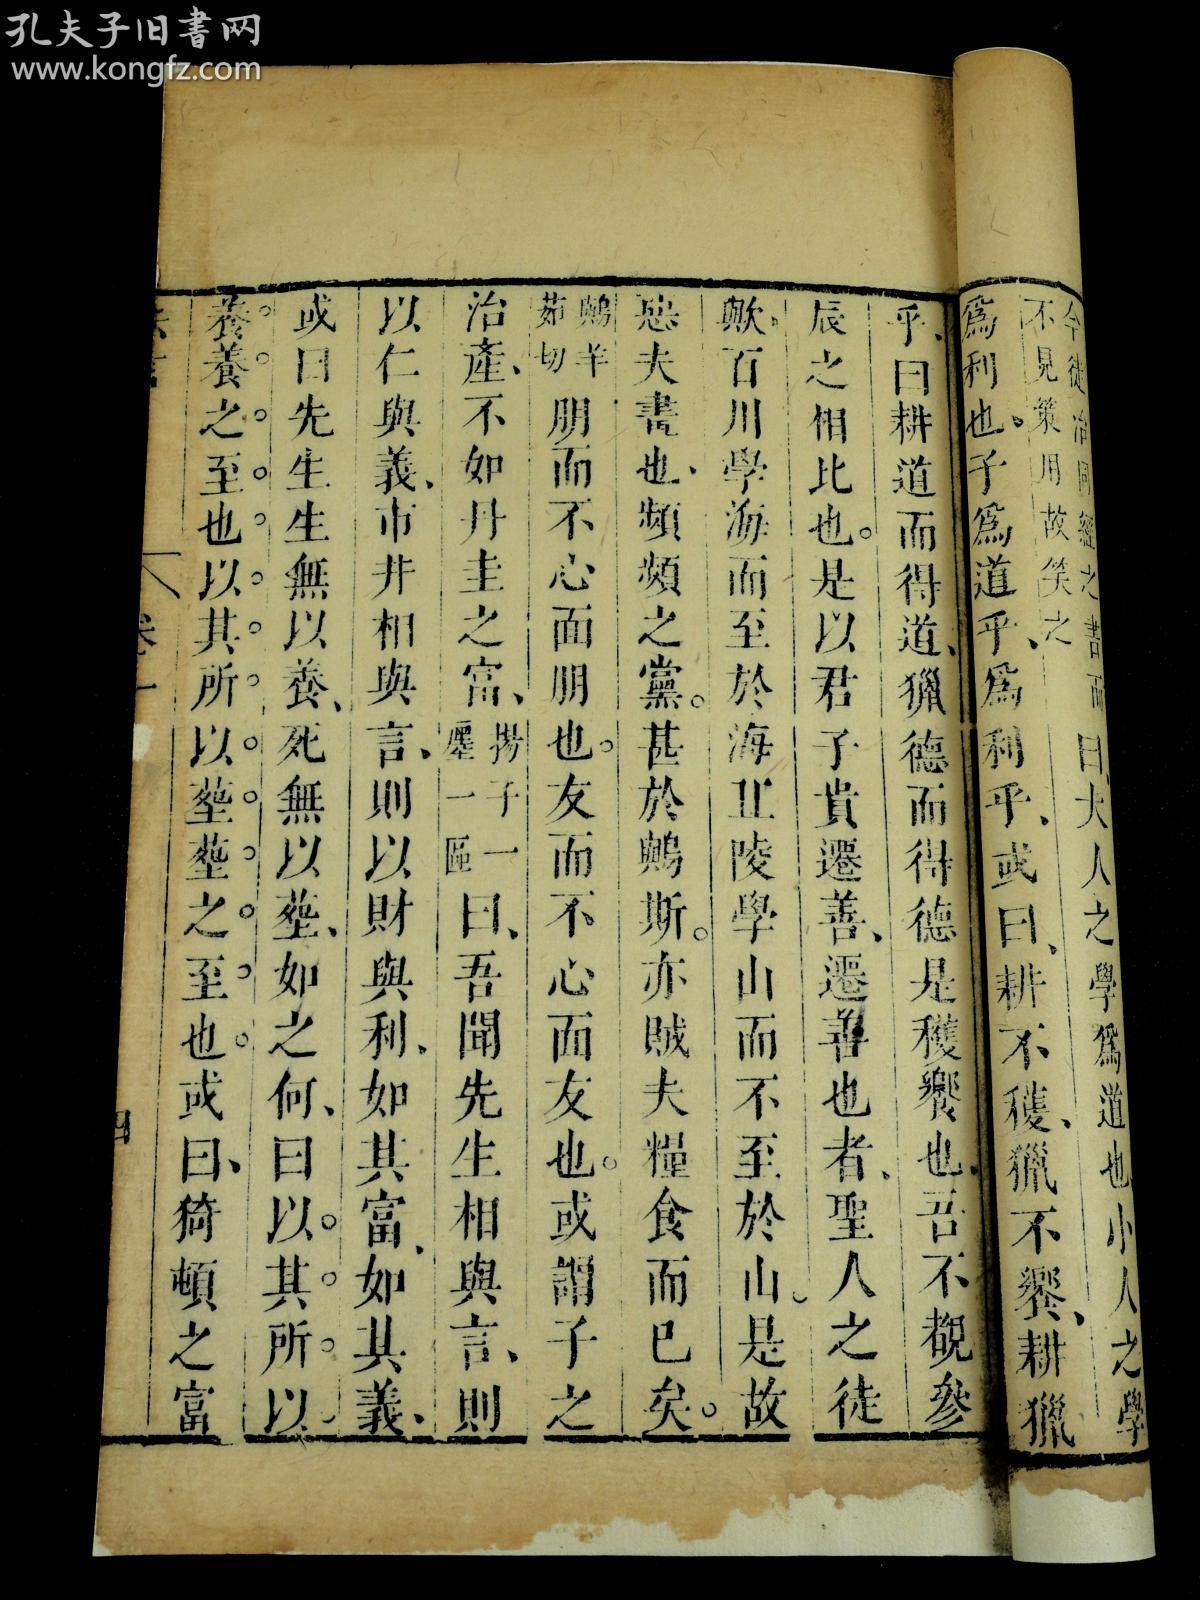 孔夫子旧書网
www.kongfz.com
今徒治同經之書而不見策用故笑之曰大人之學爲道也小人之學
爲利也子爲道乎爲利乎或曰耕不穫獵不饗耕獵
乎曰耕道而得道獵德而得德是穫饗也吾不覩參
辰之相比也是以君子貴遷善遷善也者聖人之徒
歟百川學海而至於海丘陵學山而不至於山是故
惡夫畫也頻頻之黨甚於鷍斯亦賊夫糧食而已矣
鷍羊茹切朋而不心面朋也友而不心面友也或謂子之
治產不如丹圭之富揚子一廛一區曰吾聞先生相與言則
以仁與義市井相與言則以財與利如其富如其義
或曰先生生無以養死無以塟如之何曰以其所以
養養之至也以其所以塟塟之至也或曰猗頓之富
法言
卷一
四